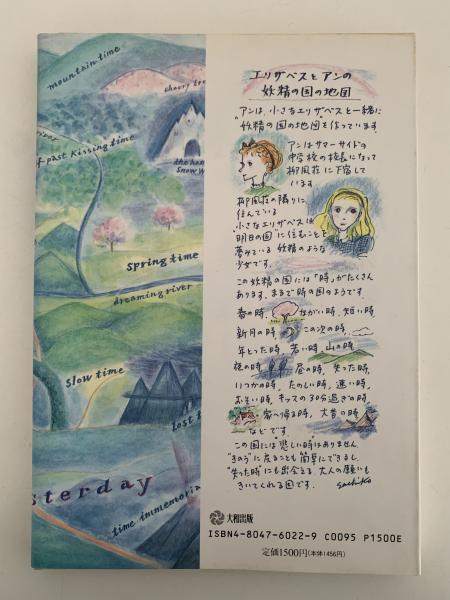 mountain time
cherry tre
river
f past kissing time
the hom
Snow W
Spring time
dreaming river
Slow time
Lost t
sterday
time immemoria
エリザベスとアンの
妖精の国の地図
アンは、小さなエリザベスと一緒に
妖精の国の地図を作っています
アンはサマーサイドの
中学校の校長になって
柳風荘に下宿して
います
柳風荘の隣りに
住んでいる
小さなエリザベスは
"明日の国"に住むことを
夢みている妖精のような
少女です。
この妖精の国には「時」がたくさん
あります。まるで時の国のようです。
春の時、ながい時、短い時
新月の時、この次の時、
年とった時、若い時、山の時
夜の時、昼の時、失った時、
いつかの時、たのしい時、速い時、
おそい時、キッスの30分過ぎの時、
家へ帰る時、大昔の時
などです。
この国には"悲しい時"はありません
"きのう"に戻ることも簡単にできるし、
"失った時"にも出会える 大人の願いも
きいてくれる国です。
sachiko
大和出版
ISBN4-8047-6022-9 C0095 P1500E
定価1500円(本体1456円)